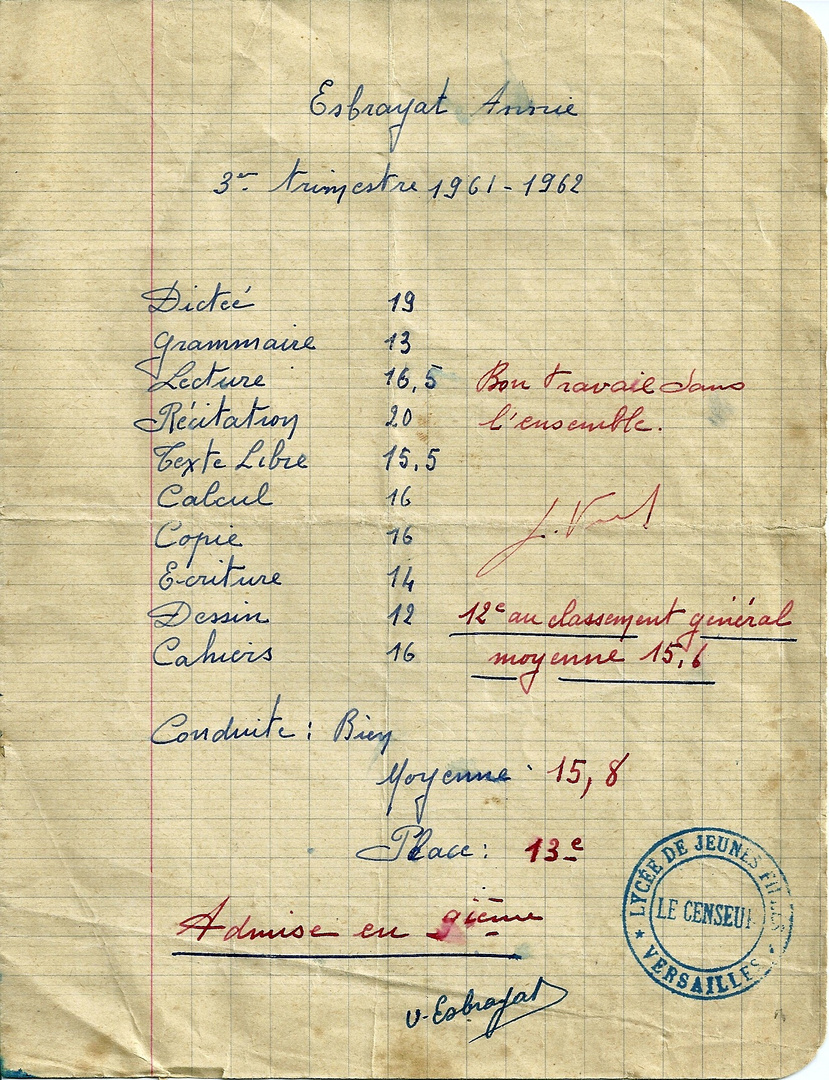 Esbrayat Annie
3er trimestre 1961-1962
Dictée 19
Grammaire 13
Lecture 16,5 Bon travail dans
Récitation 20 l'ensemble.
Texte Libre 15,5
Calcul 16
Copie 16
Ecriture 14
Dessin 12 12e au classement général
Cahiers 16 moyenne 15,6
Conduite : Bien
Moyenne : 15,8
Place : 13e
Admise en 9ième
LYCÉE DE JEUNES FILLES
LE CENSEUR
VERSAILLES
V. Esbrayat